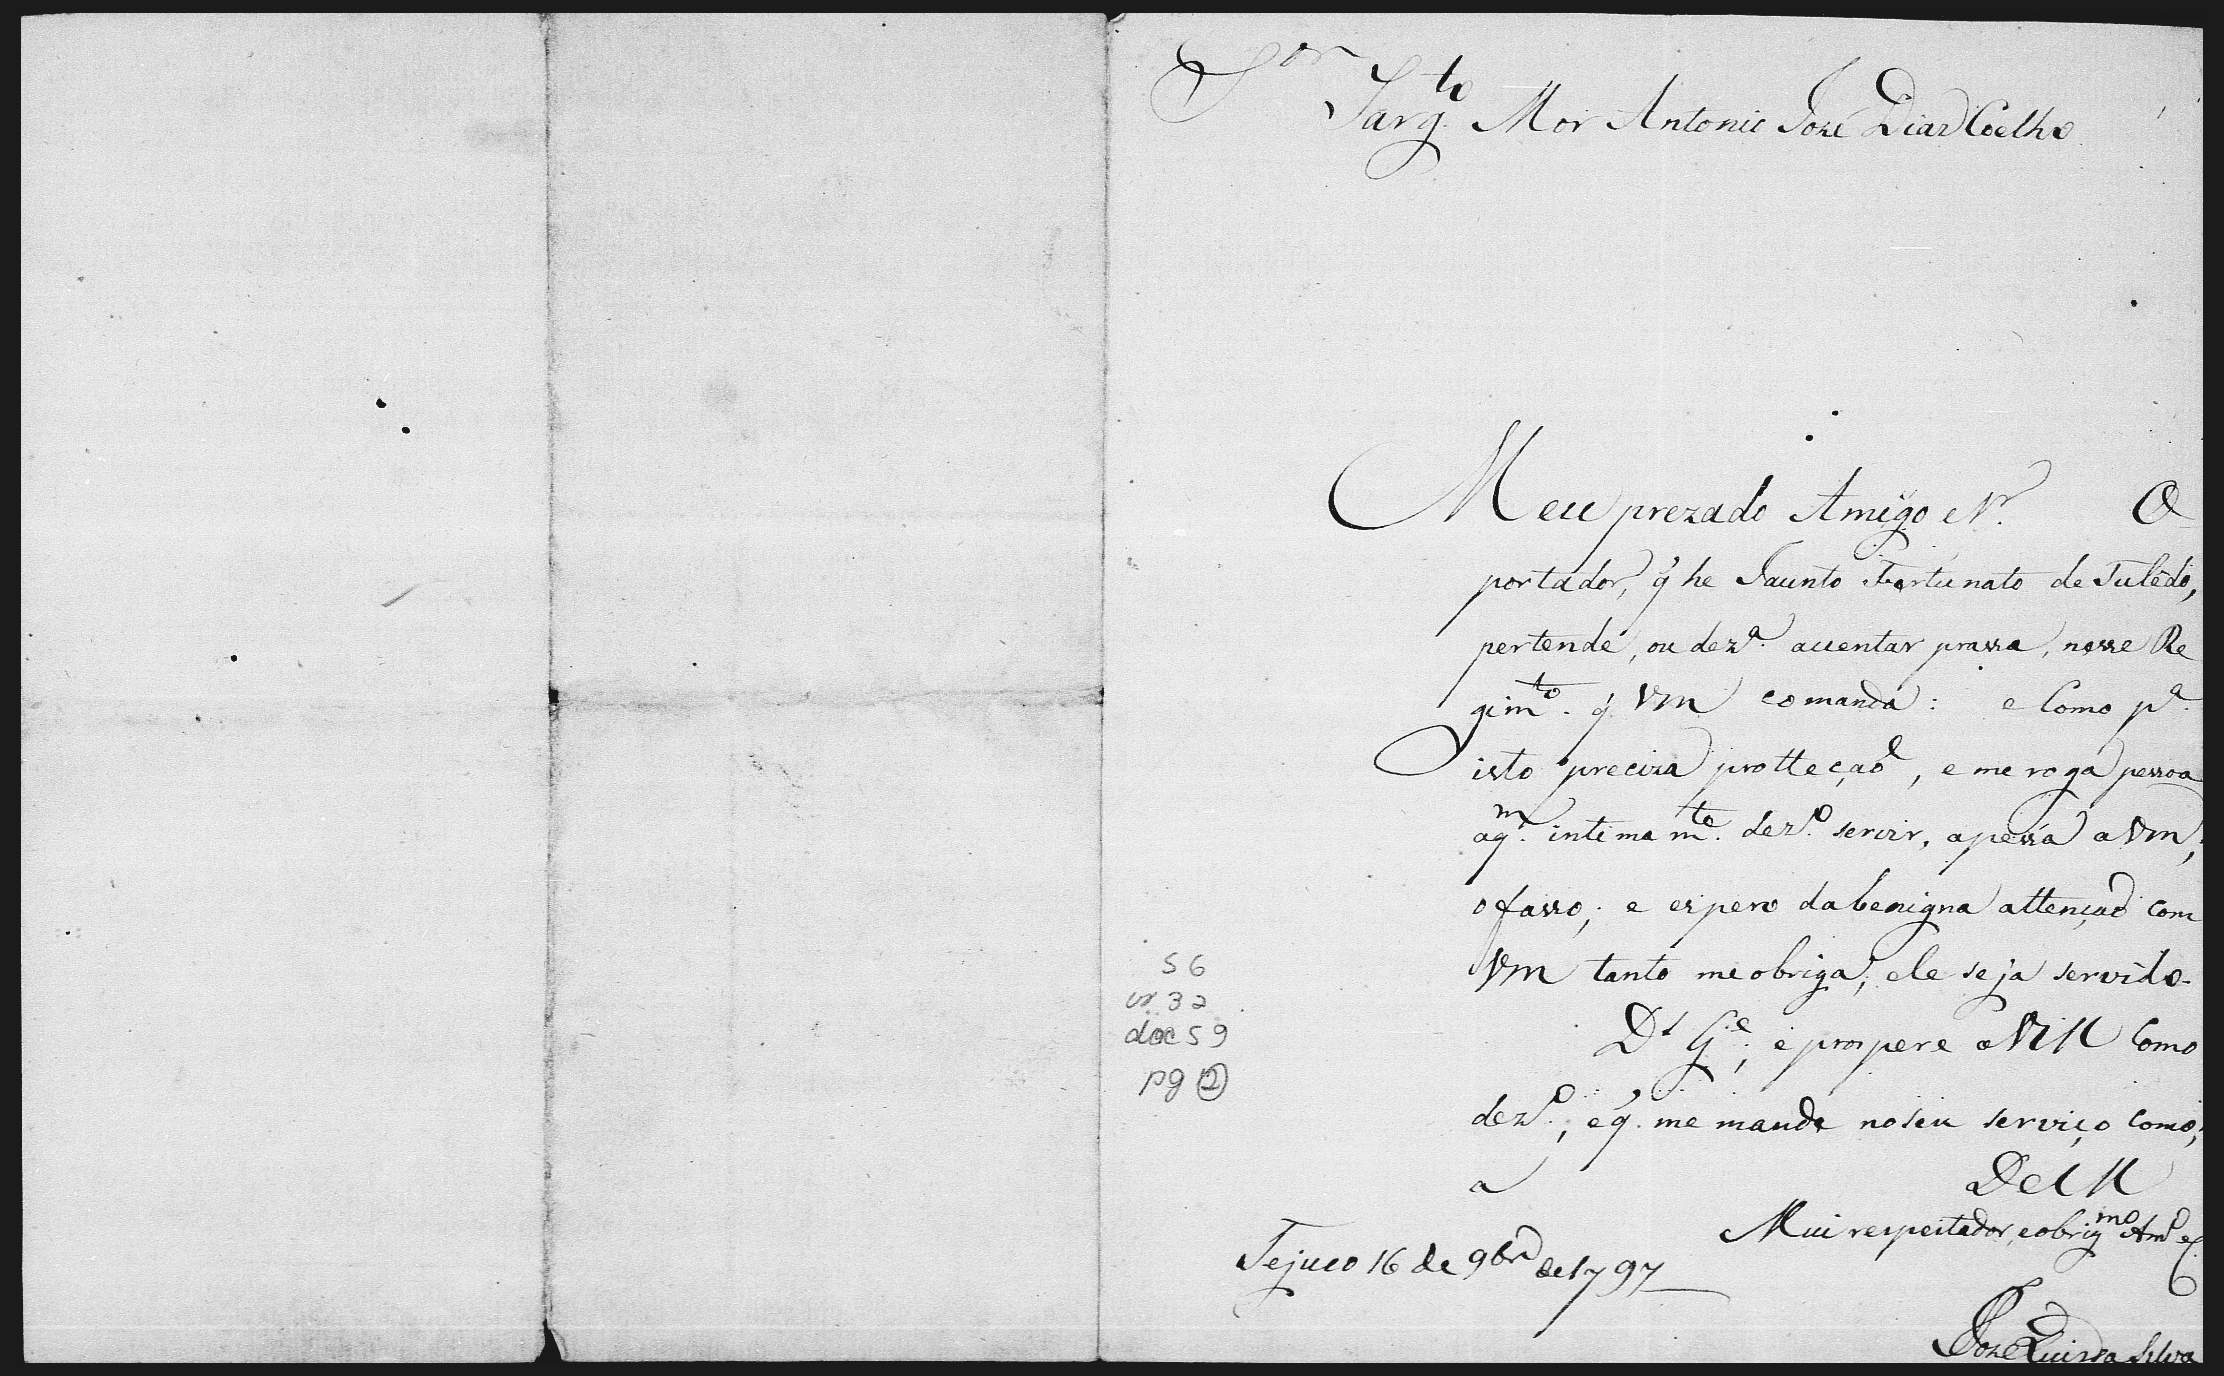 Sor Sargto Mor Antonio José Dias Coelho
Meu prezado Amigo e Sr. O
portador, q̃ he Fausto Fortunato de Tulêdo,
pertende, ou dezª. acentar prassa, nesse Re
gimto. q̃ Vm comanda: e Como pª.
isto preciza protteçaõ, e me roga pessoa
aqm. intimamte. dezº. servir, apessa a Vm,
o fasso; e espero da benigna attençaõ com
Vm tanto me obriga; ele seja servido.
Ds Ge; e prospere a Vm Como
dezº., e q̃. me mande no seu serviço como,
a
De Vm
Mui respeitador, e obrigmo Amº e C
Tejuco 16 de 9bro de 1797
Joze Luis da Silva
S 6
cx 32
doc 59
pg 2